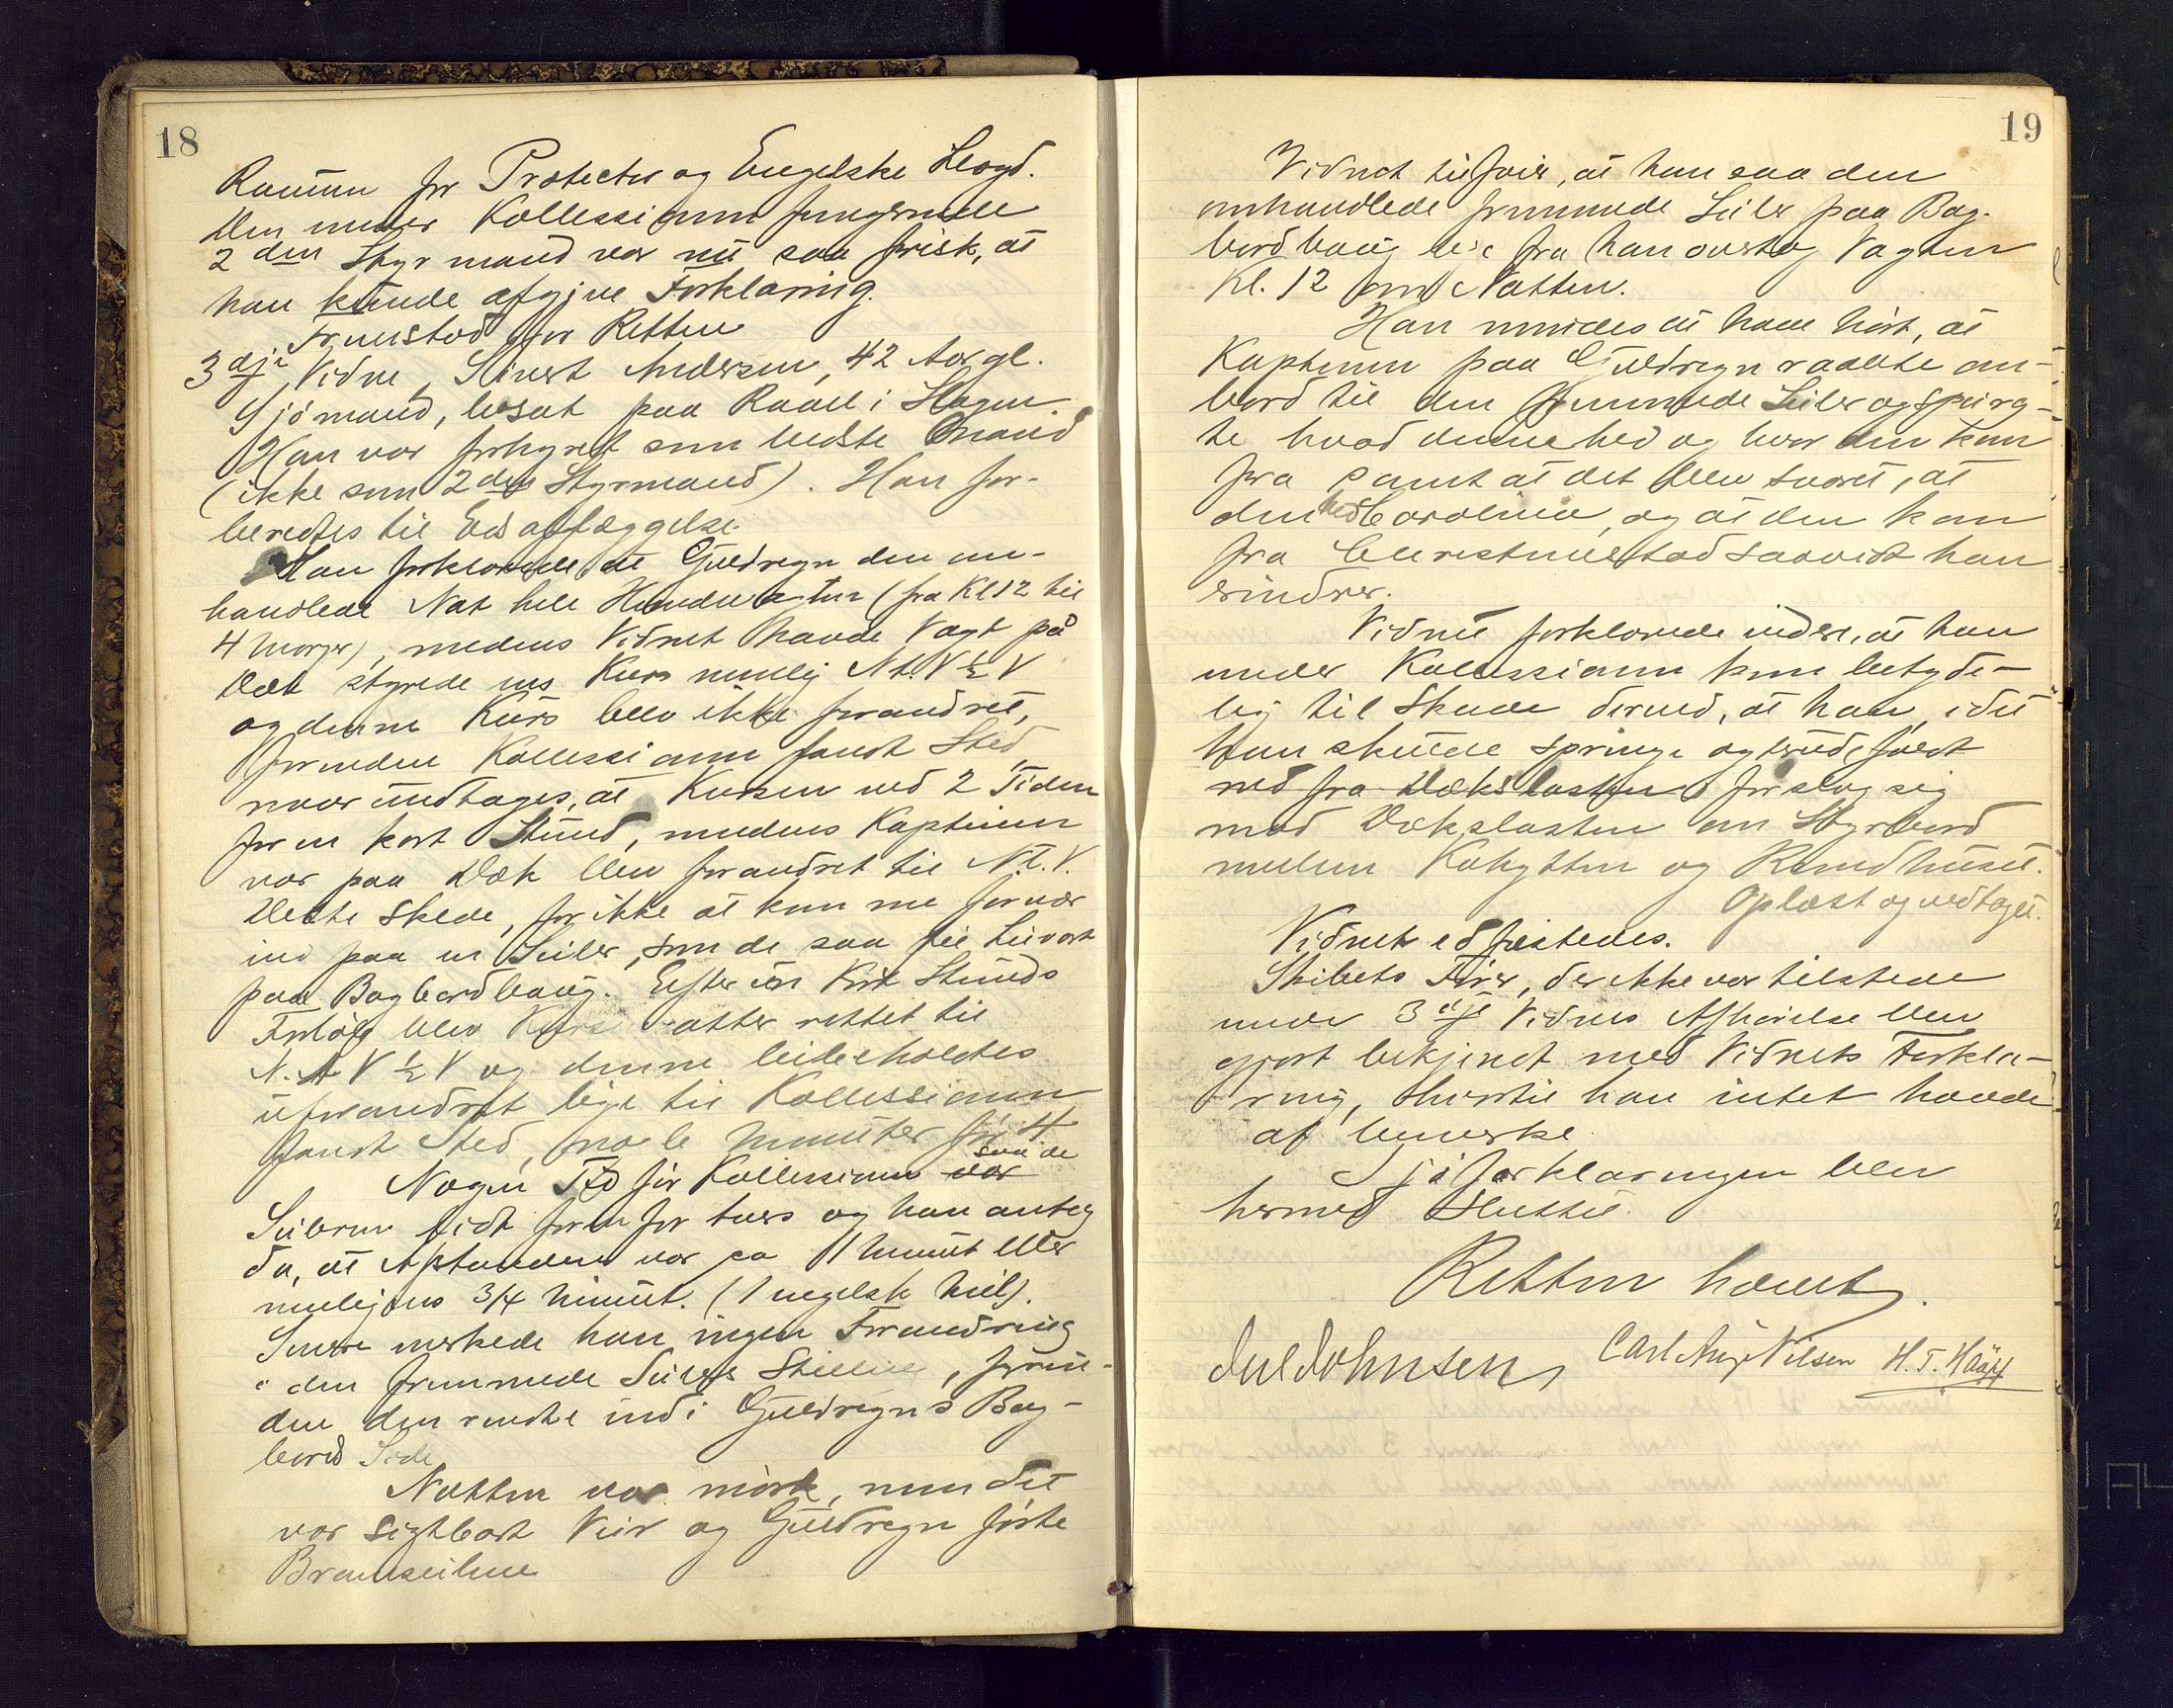 18
Raum for Protector og Engelske Lloyd.
Den under Kollessionen fungerende
2den Styrmand var nu saa frisk, at
han kunde afgive Forklaring.
Fremstod for Retten
3dje Vidne, Sivert Andersen, 42 Aar gl.
Sjømand, bosat paa Raael i Slagen.
Han var forhyret som bedste Mand
(ikke som 2den Styrmand). Han for-
beredtes til Edsaflæggelse.
Han forklarede at Guldregn den om-
handlede Nat hele Hundevagten (fra Kl 12 til
4 Morgen), medens Vidnet havde Vagt på
Dæk styrede en Kurs nemlig N.t.V ½ V
og denne Kurs blev ikke forandret,
forinden Kollessionen fandt Sted
naar undtages, at Kursen ved 2 Tiden
for en kort Stund, medens Kapteinen
var paa Dæk blev forandret til N.t.V.
Dette skede, for ikke at komme for nær
ind paa en Seiler, som de saa til Luvart
paa Bagbordboug. Efter en kort Stunds
Forløb blev Kursen atter rettet til
N.t.V ½ V og denne bibeholdtes
uforandret lige til Kollessionen
fandt Sted, nogle Minuter før 4.
Nogen Tid før Kollessionen var saa de
Seileren lidt foren for tvers og han antog
da, at Afstanden var ca 1 Minut eller
muligens 3/4 Minut. (1 engelsk Mil).
Senere merkede han ingen Forandring
i den fremmede Seilers Stilling, forin-
den den rendte ind i Guldregns Bag-
bords Side
Natten var mörk, men det
var sigtbart Veir og Guldregn førte
Bramseilene
19
Vidnet tilføier, at han saa den
omhandlede fremmede Seiler paa Bag-
bordboug lige fra han overtog Vagten
Kl. 12 om Natten.
Han mindes at have hört, at
Kapteinen paa Guldregn raabte om-
bord til den fremmede Seiler og spurg-
te hvad denne hed og hvor den kom
fra samt at det blev svaret, at
den hed Carolina, og at den kom
fra Christinestad saavidt han
erindrer.
Vidnet forklarede videre, at han
under Kollessionen kom betyde-
lig til Skade derved, at han, idet
han skulde springe og faldt
ned fra Dækslasten forslog sig
mod Dækslasten om Styrbord
mellem Kahytten og Rundhuset.
Oplæst og vedtaget.
Vidnet edfæstedes.
Skibets Fører, der ikke var tilstede
under 3dje Vidnes Afhørelse blev
gjort bekjendt med Vidnets Forkla-
ring, hvortil han intet havde
at bemerke.
Sjøforklaringen blev
hermed sluttet.
Retten hævet.
Jul Johnsen, Carl Aug. Nilsen H. T. Haaff